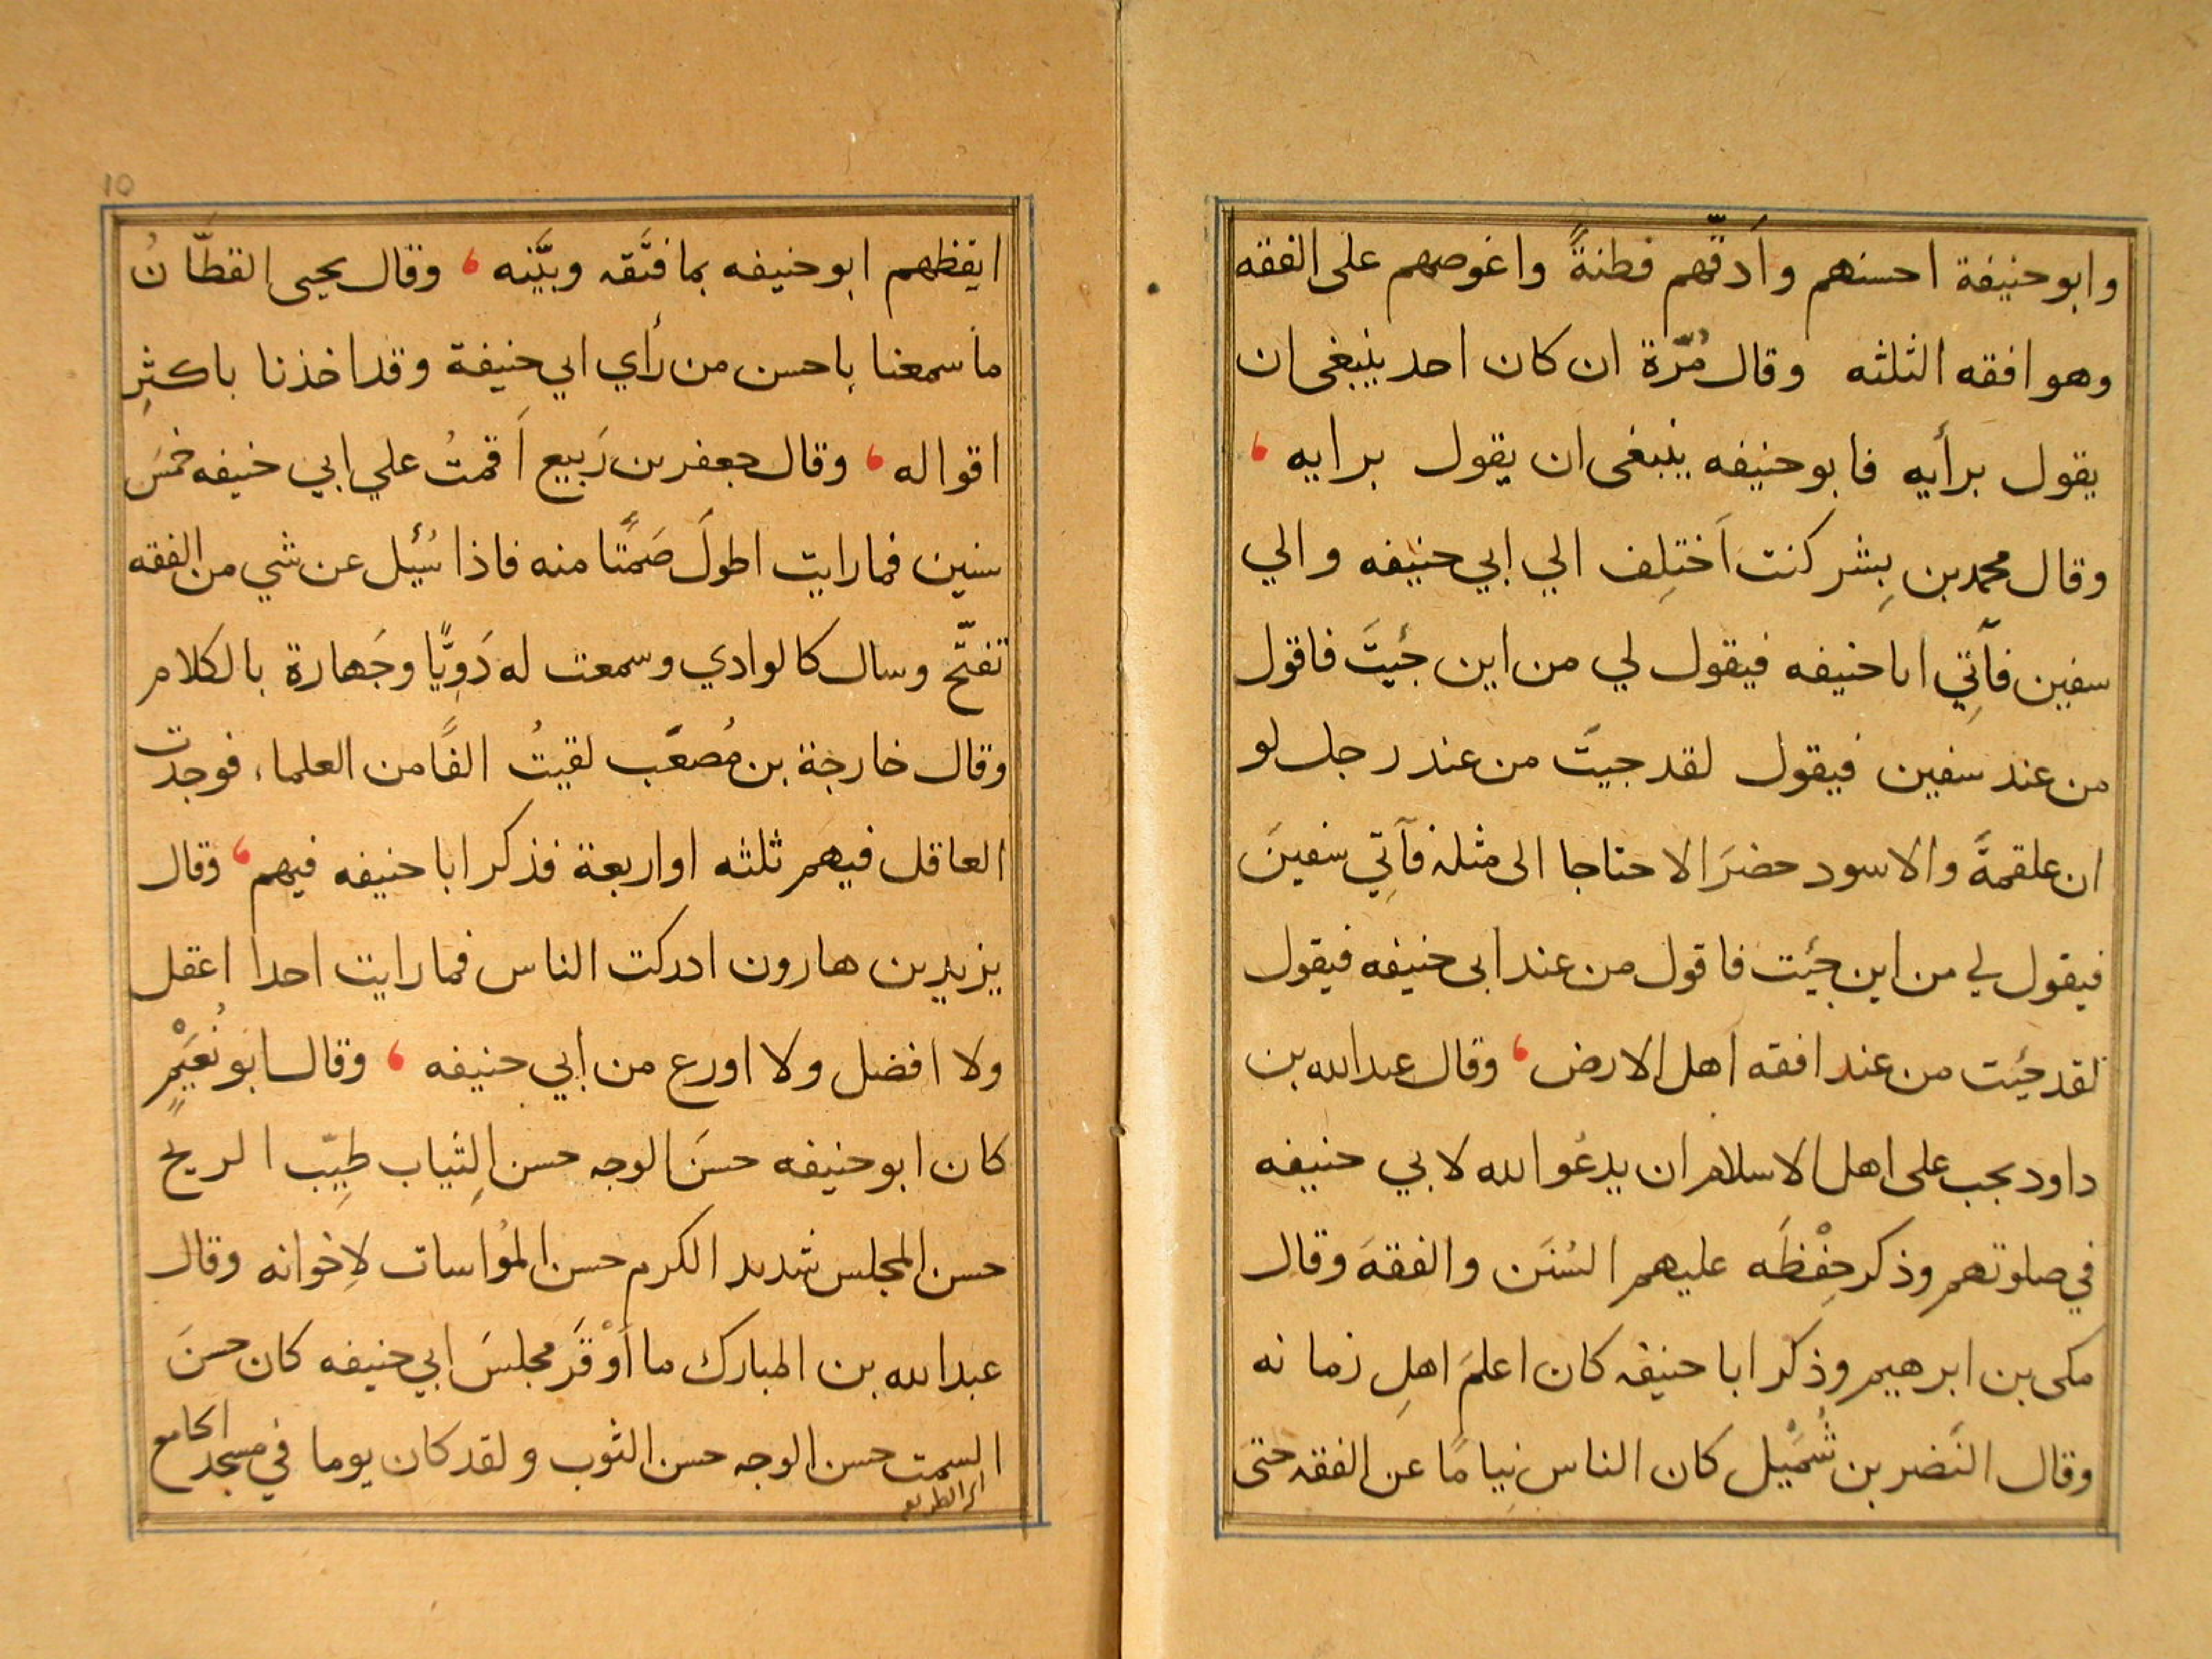 وابو حنيفة احسنهم وأدقّهم فطنةً واغوصهم على الفقه
وهو افقه الثلثه وقال مُرّة ان كان احد ينبغى ان
يقول برأيه فابو حنيفه ينبغى ان يقول برايه ،
وقال محمد بن بِشر كنت اَختلِف الي ابي حنيفه والي
سفين فآتِي ابا حنيفه فيقول لي من اين جئتَ فاقول
من عند سفين فيقول لقد جيتَ من عند رجل لو
ان علقمةَ والاسود حضرَا لاحتاجا الى مثله فآتِي سفينَ
فيقول لي من اين جئت فاقول من عند ابى حنيفه فيقول
لقد جئت من عند افقه اهل الارض ، وقال عبد الله بن
داود يجب على اهل الاسلام ان يدعُوا لله لابي حنيفه
في صلوتهم وذكر حِفْظَه عليهم السُنَن والفقهَ وقال
مكى بن ابرهيم وذكر ابا حنيفه كان اعلمَ اهلِ زمانه
وقال النَضر بن شُمَيْل كان الناس نِيامًا عن الفقه حتى
10
ايقظهم ابو حنيفه بما فتَّقه وبيَّنه ، وقال يحيى القطّانُ
ما سمعنا باحسن من رأي ابي حنيفة وقد اخذنا باكثرِ
اقواله ، وقال جعفر بن رَبيع اَقمتُ علي ابي حنيفه خمسَ
سنين فما رايت اطولَ صَمتًا منه فاذا سُئِل عن شي من الفقه
تفتّح وسال كالوادي وسمعت له دَوِيًّا وجَهارة بالكلام
وقال خارجة بن مُصعَب لقيتُ الفًا من العلماء فوجدت
العاقل فيهم ثلثه او اربعة فذكر ابا حنيفه فيهم ، وقال
يزيد بن هارون ادركت الناس فما رايت احدا اعقل
ولا افضل ولا اورع من ابي حنيفه ، وقال ابو نُعَيْمٍ
كان ابو حنيفه حسنَ الوجه حسن الثِياب طيِّب الريح
حسن المجلس شديد الكرم حسن المُواسات لاِخوانه وقال
عبد الله بن المبارك ما أَوْقَر مجلسَ ابي حنيفه كان حسنَ
السمت حسن الوجه حسن الثوب ولقد كان يوما في مسجد الجامع